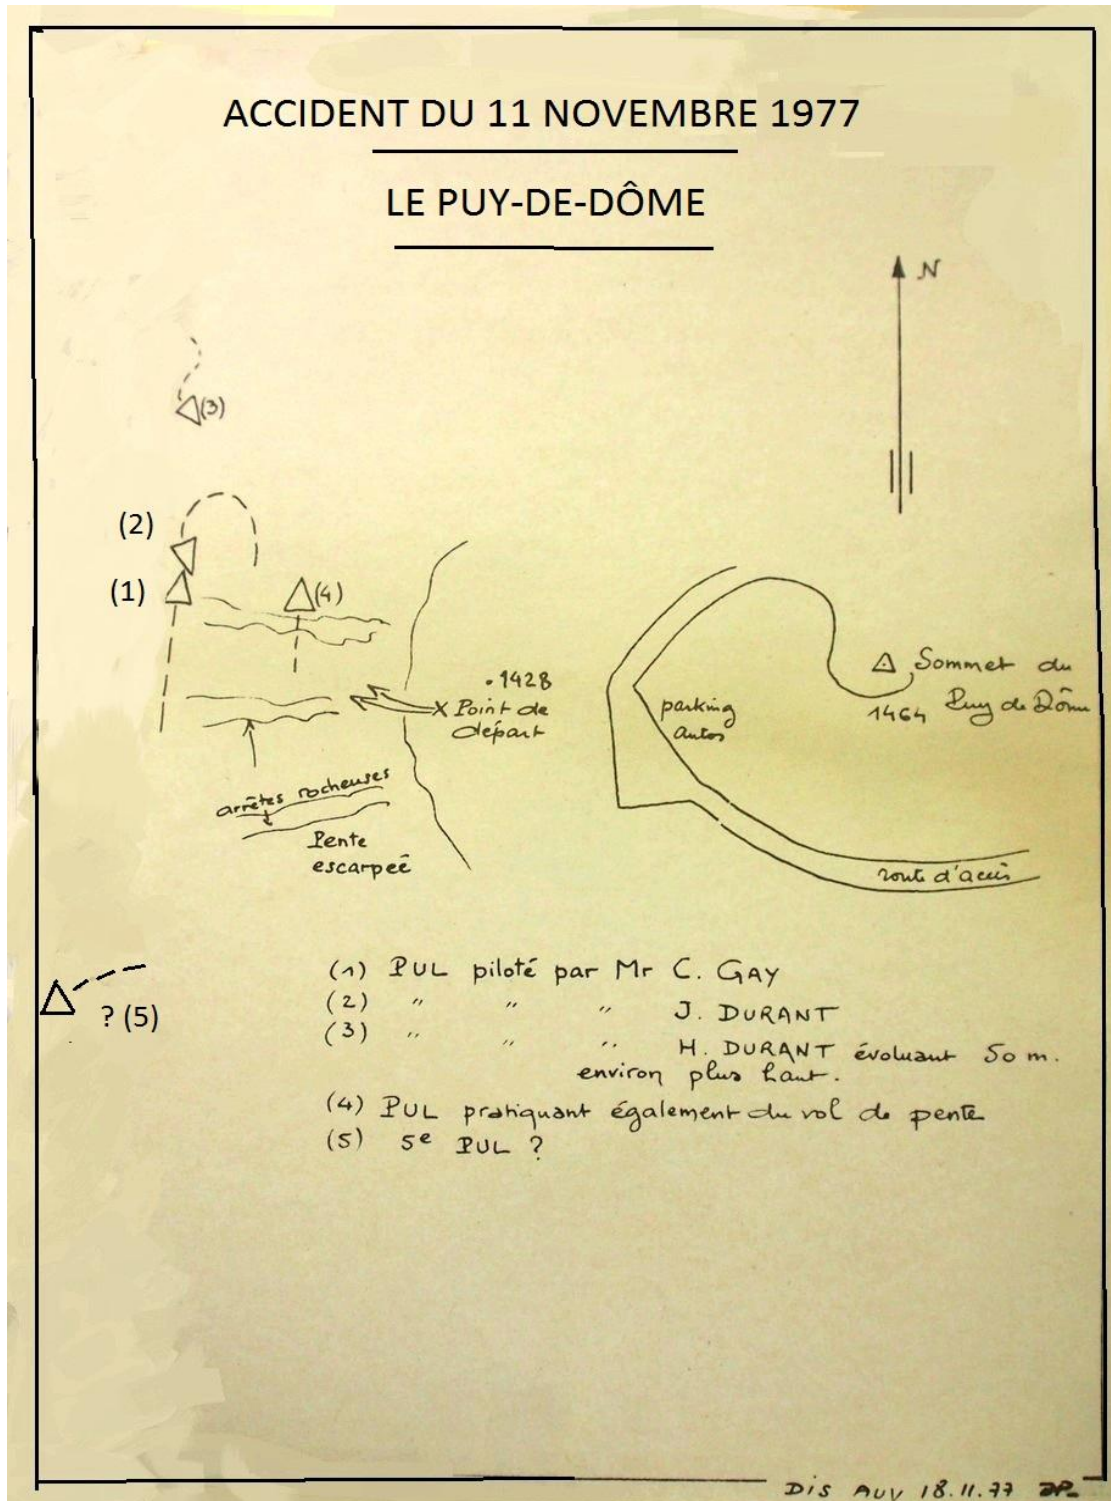 ACCIDENT DU 11 NOVEMBRE 1977
LE PUY-DE-DÔME
N
(3)
(2)
(1)
(4)
.1428
X Point de
départ
parking
autos
Sommet du
Puy de Dôme
1464
arrêtes rocheuses
Pente
escarpeé
route d'accès
? (5)
(1) PUL piloté par Mr C. GAY
(2) " " " J. DURANT
(3) " " " H. DURANT évoluant 50 m.
environ plus haut.
(4) PUL pratiquant également du vol de pente
(5) 5e PUL ?
DIS AUV 18.11.77